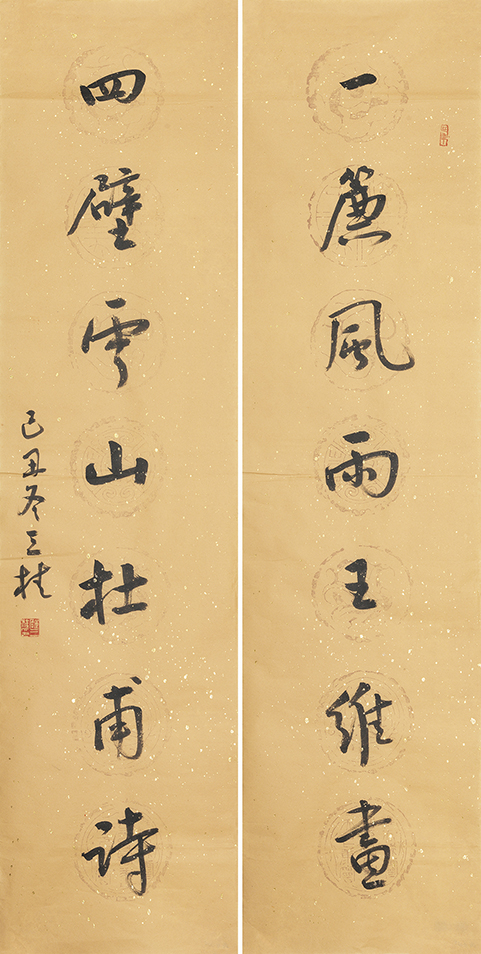 一簾風雨王維畫
四壁雲山杜甫詩
己丑冬三桂